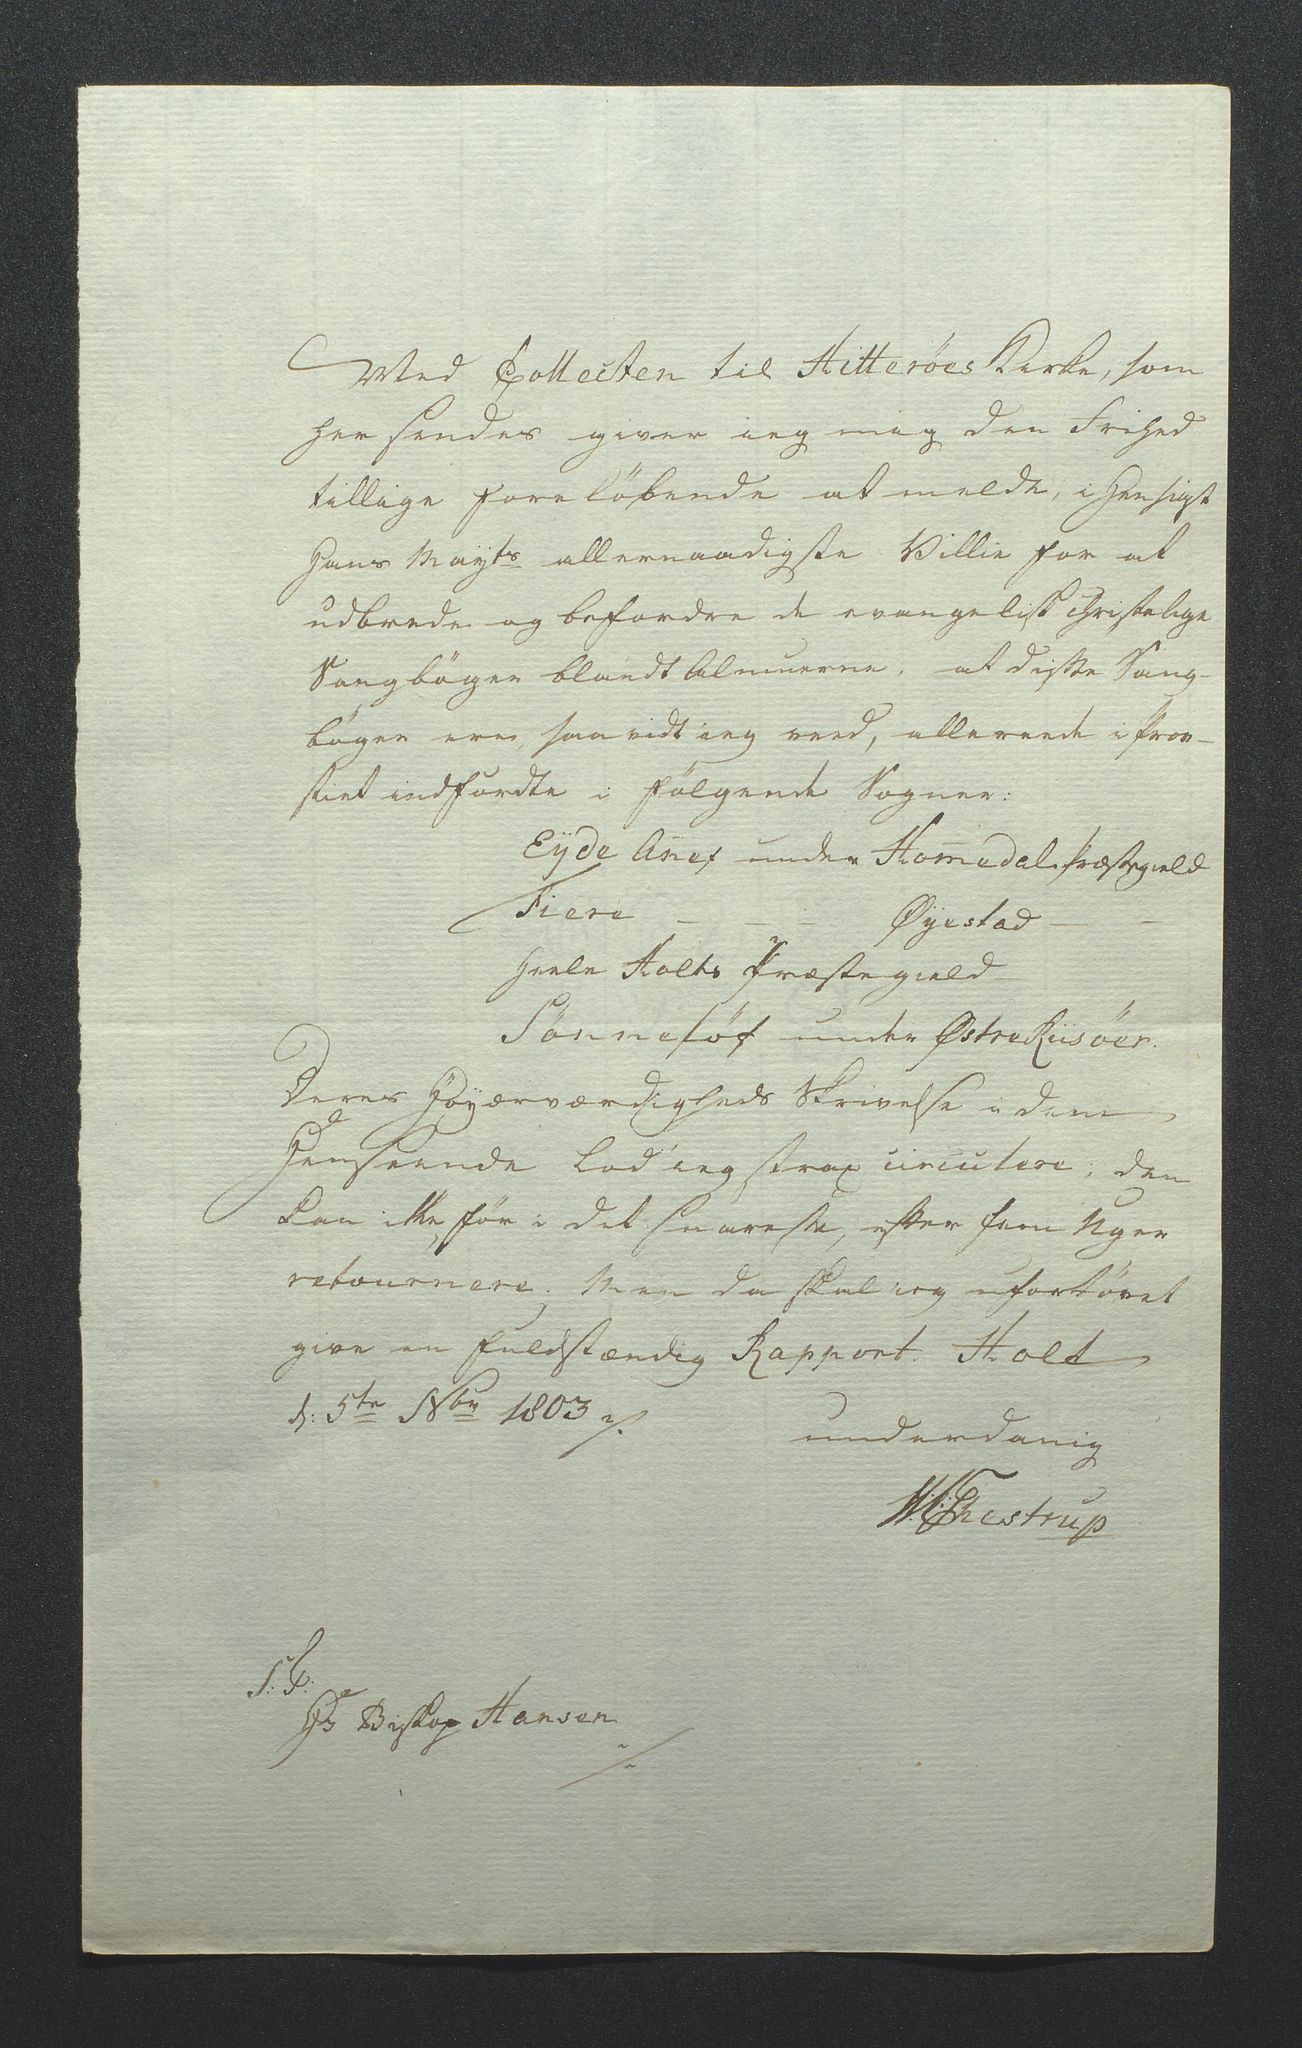 Med Collecten til Hitteröes Kirke, som
her sendes giver ieg mig den Frihed
tillige foreløbende at melde, i Hensigt
Hans Mayts allernaadigste Villie for at
udbrede og befordre de evangelisk christelige
Sangbøger blandt Almuerne, at disse Sang-
bøger ere, saavidt ieg veed, allerede i Prov-
stiet indførdte i følgende Sogner:
Eyde Anex under Homedals Præstegield
Fiere — — — Øyestad — —
Heele Holts Præstegield
Sönneløf under Østre Riisöer.
Deres Høyærværdigheds Skrivelse i den
Henseende lod ieg strax circulere; den
kan ikke, før i det snareste, efter fem Uger
retournere. Men da skal ieg ufortövet
give en fuldstændig Rapport. Holt
d: 5te Nbr 1803 ./.
underdanig
Thestrup
S: T:
Hr Biskop Hansen